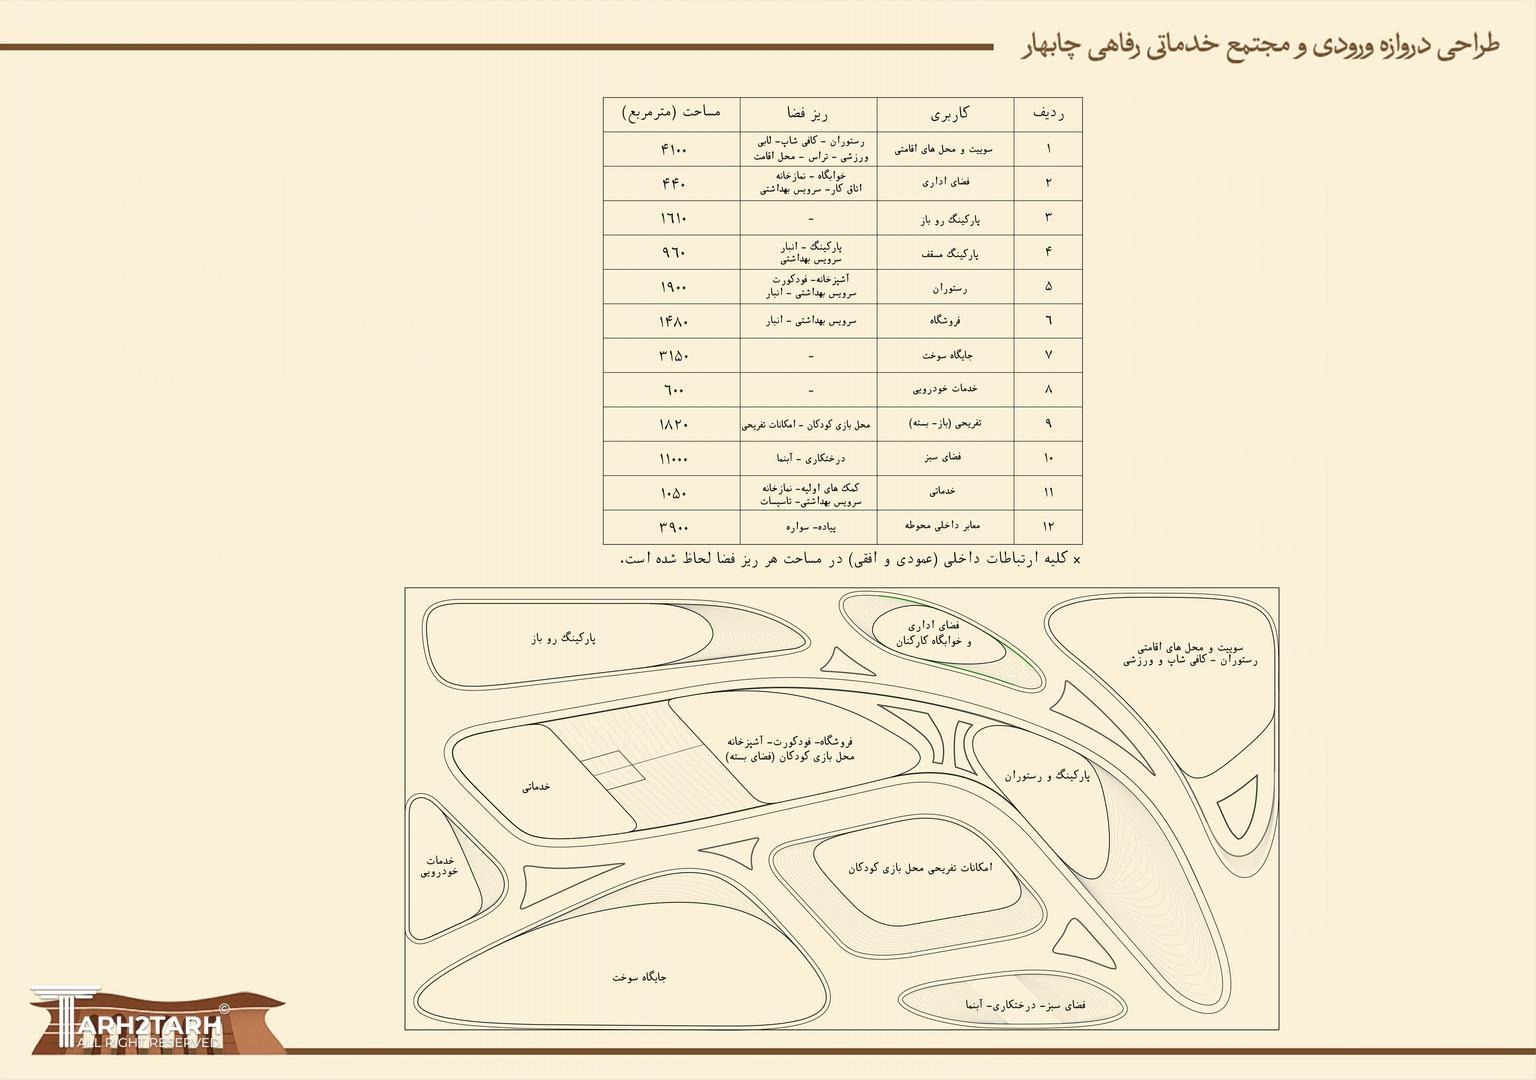 طراحی دروازه ورودی و مجتمع خدماتی رفاهی چابهار
ردیف	کاربری	ریز فضا	مساحت (مترمربع)
۱	سوییت و محل های اقامتی	رستوران - کافی شاپ- لابی	۴۱۰۰
ورزشی - تراس - محل اقامت
۲	فضای اداری	خوابگاه - نمازخانه	۴۴۰
اتاق کار- سرویس بهداشتی
۳	پارکینگ رو باز	-	۱۶۱۰
۴	پارکینگ مسقف	پارکینگ - انبار	۹۶۰
سرویس بهداشتی
۵	رستوران	آشپزخانه- فودکورت	۱۹۰۰
سرویس بهداشتی - انبار
۶	فروشگاه	سرویس بهداشتی - انبار	۱۴۸۰
۷	جایگاه سوخت	-	۳۱۵۰
۸	خدمات خودرویی	-	۶۰۰
۹	تفریحی (باز- بسته)	محل بازی کودکان - امکانات تفریحی	۱۸۲۰
۱۰	فضای سبز	درختکاری - آبنما	۱۱۰۰۰
۱۱	خدماتی	کمک های اولیه- نمازخانه	۱۰۵۰
سرویس بهداشتی- تاسیسات
۱۲	معابر داخلی محوطه	پیاده- سواره	۳۹۰۰
× کلیه ارتباطات داخلی (عمودی و افقی) در مساحت هر ریز فضا لحاظ شده است.
سوییت و محل های اقامتی
رستوران - کافی شاپ و ورزشی
فضای اداری
و خوابگاه کارکنان
پارکینگ رو باز
فروشگاه- فودکورت- آشپزخانه
محل بازی کودکان (فضای بسته)
پارکینگ و رستوران
خدماتی
خدمات
خودرویی
امکانات تفریحی محل بازی کودکان
جایگاه سوخت
فضای سبز- درختکاری- آبنما
TARH2TARH ©
ALL RIGHT RESERVED